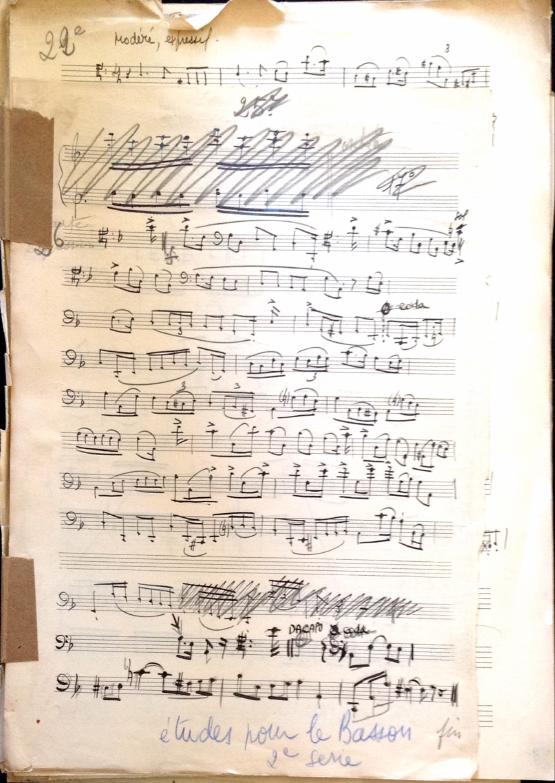 22e Modéré, expressif.
3
coda
3
3 3
DACAPO coda
fin
études pour le Basson
2e serie